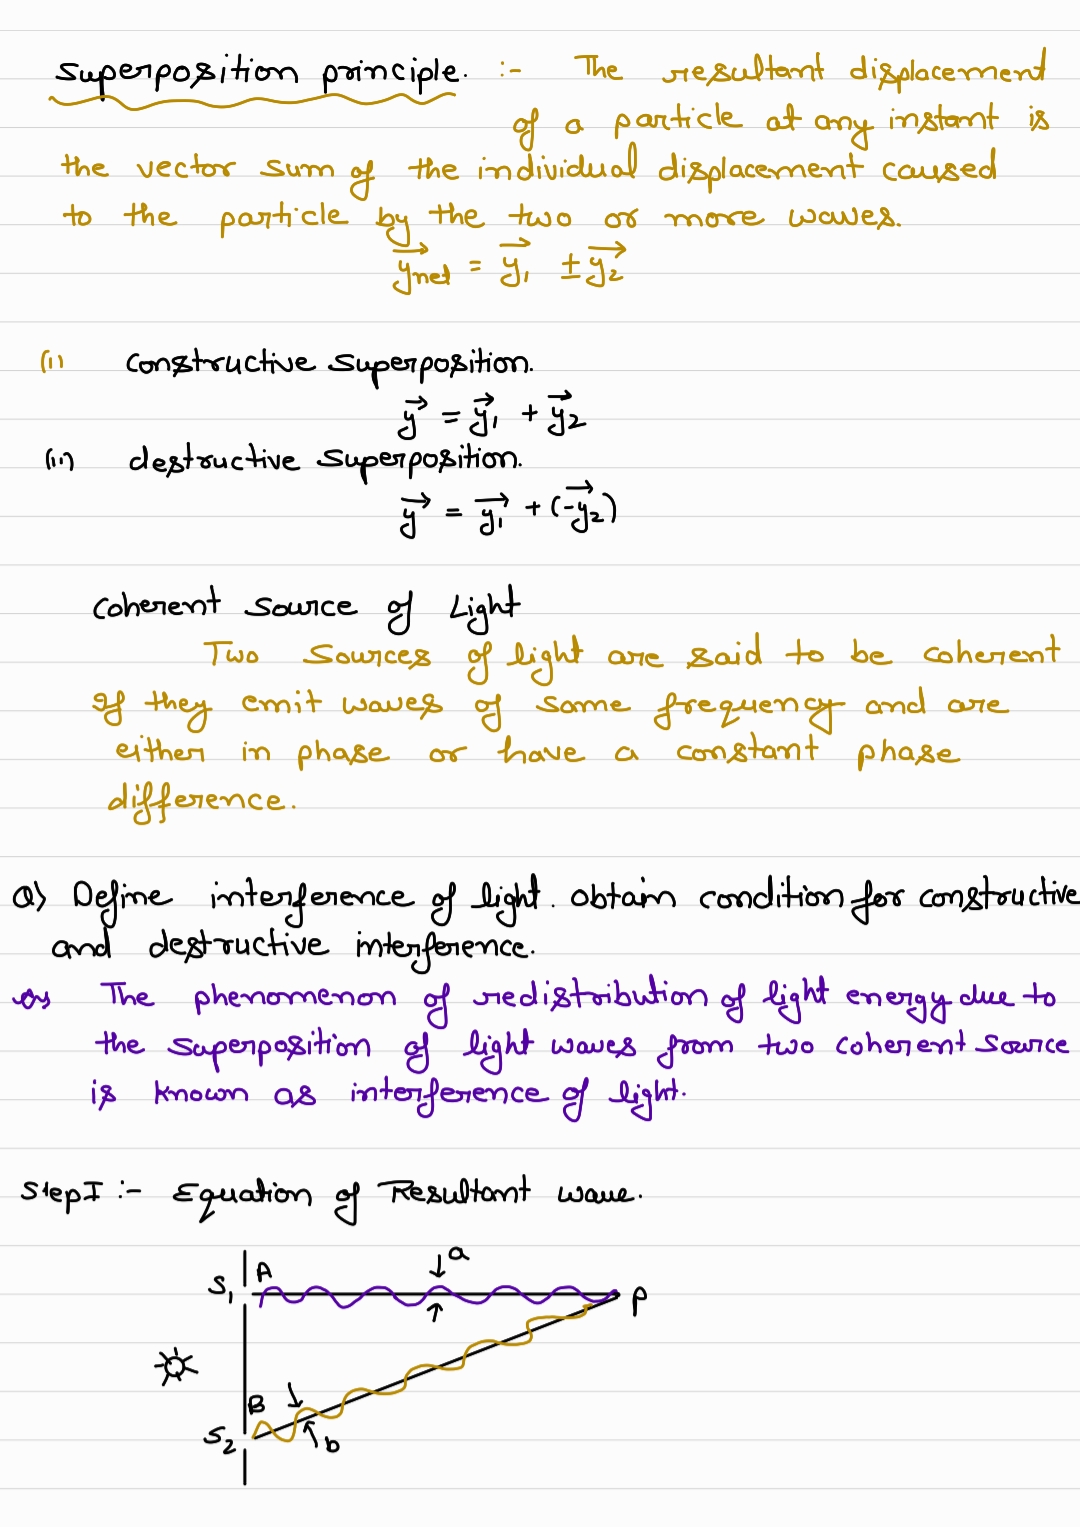 Superposition principle. :- The resultant displacement
of a particle at any instant is
the vector sum of the individual displacement caused
to the particle by the two or more waves.
y⃗net = y⃗₁ ± y⃗₂
(i) Constructive Superposition.
y⃗ = y⃗₁ + y⃗₂
(ii) destructive Superposition.
y⃗ = y⃗₁ + (-y⃗₂)
Coherent Source of Light
Two Sources of light are said to be coherent
If they emit waves of same frequency and are
either in phase or have a constant phase
difference.
Q) Define interference of light. obtain condition for constructive
and destructive interference.
The phenomenon of redistribution of light energy due to
the superposition of light waves from two coherent source
is known as interference of light.
Step I :- Equation of Resultant wave.
S₁ A a P
B
S₂ b